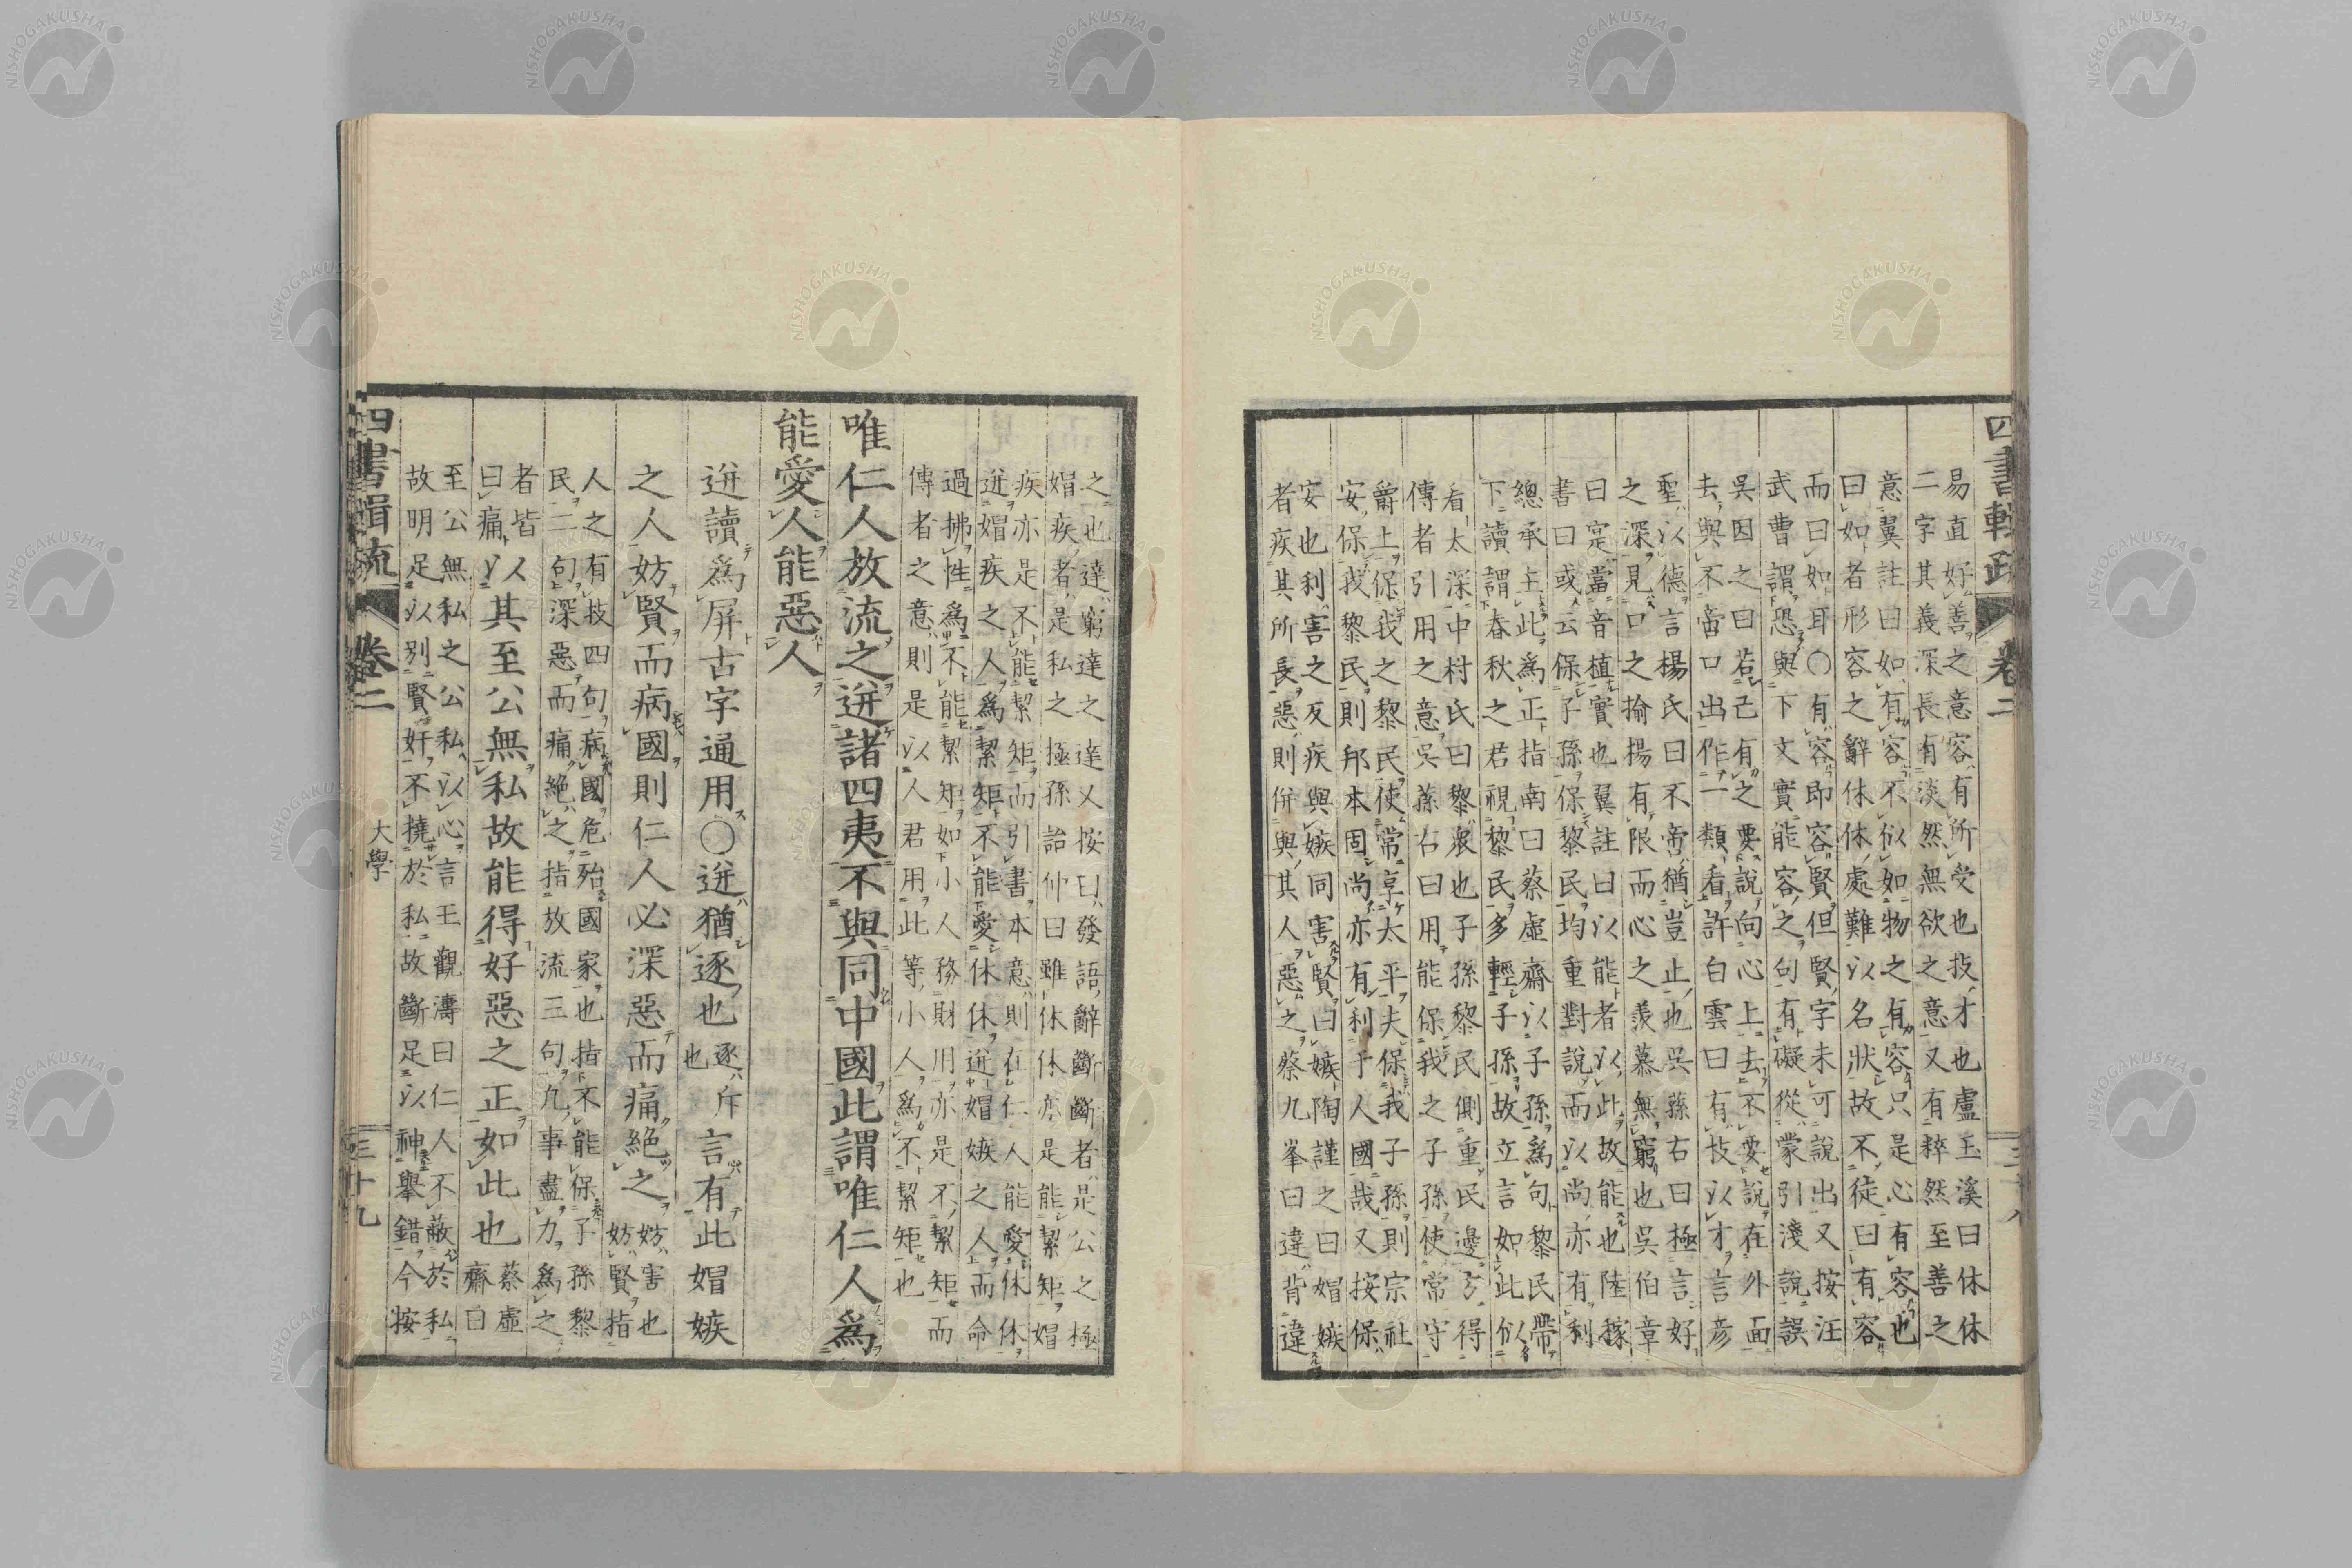 四書輯疏 卷二
易直好善之意容有所受也技才也盧玉溪曰休休
二字其義深長有淡然無欲之意又有粹然至善之
意翼註曰如有容不似如物之有容只是心有容也
曰如者形容之辭休休處難以名狀故不徒曰有容
而曰如耳○有容即容賢但賢字未可說出又按汪
武曹謂恐與下文實能容之句有礙從蒙引淺說誤
吳因之曰若己有之要說向心上去不要說在外面
去與不啻口出作一類看許白雲曰有技以才言彥
聖以德言楊氏曰不啻猶豈止也吳蓀右曰極言好
之深見口之揄揚有限而心之羨慕無窮也吳伯章
曰寔當音植實也翼註曰以能者以此故能也陸稼
書曰或云保子孫保黎民均重對說而以尚亦有利
總承上此為正指南曰蔡虛齋以子孫為句黎民帶
下讀謂春秋之君視黎民多輕子孫故立言如此似
看太深中村氏曰黎衆也子孫黎民側重民邊方得
傳者引用之意吳蓀右曰用能保我之子孫使常守
爵土保我之黎民使常享太平夫保我子孫則宗社
安保我黎民則邦本固尚亦有利于人國哉又按保
安也利害之反疾與嫉同害賢曰嫉陶謹之曰媢嫉
者疾其所長惡則併與其人惡之蔡九峯曰違背違
之也達窮達之達又按曰發語辭斷斷者是公之極
媢疾者是私之極孫詒仲曰雖休休亦是能絜矩媢
疾亦是不能絜矩而引書本意則在仁人能愛休休
迸媢疾之人為絜矩不能愛休休迸媢嫉之人而命
過拂性為不能絜矩如小人務財用亦是不絜矩而
傳者之意則是以人君用此等小人為不絜矩也
唯仁人放流之迸諸四夷不與同中國此謂唯仁人為
能愛人能惡人
迸讀為屏古字通用○迸猶逐也逐斥也言有此媢嫉
之人妨賢而病國則仁人必深惡而痛絕之妨害也妨賢指
人之有技四句病國危殆國家也指不能保子孫黎
民二句深惡而痛絕之指放流三句凡事盡力為之
者皆曰痛以其至公無私故能得好惡之正如此也蔡虛齋曰
至公無私之公私以心言王觀濤曰仁人不蔽於私
故明足以別賢奸不撓於私故斷足以神舉錯今按
四書輯疏 卷二 大學 三十九